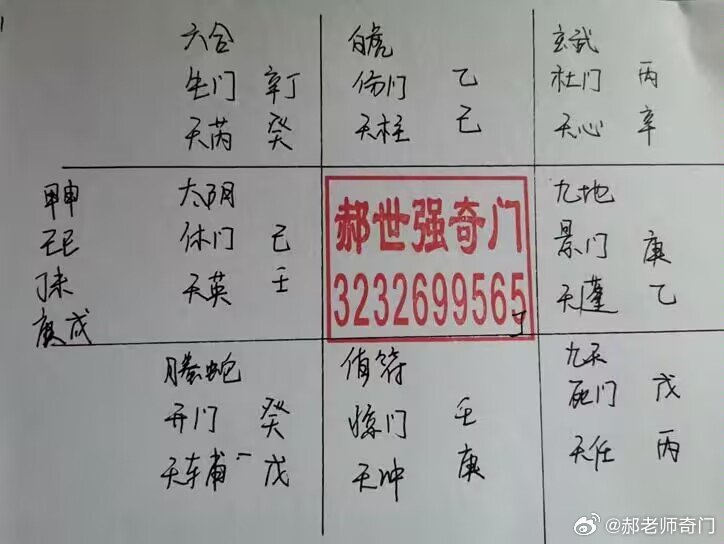 六合
生门 辛丁
天芮 癸
白虎
伤门 乙
天柱 己
玄武
杜门 丙
天心 辛
甲申
己巳
丁未
庚戌
太阴
休门 己
天英 壬
郝世强奇门
3232699565
丁
九地
景门 庚
天蓬 乙
螣蛇
开门 癸
天辅 戊
值符
惊门 壬
天冲 庚
九天
死门 戊
天任 丙
@郝老师奇门